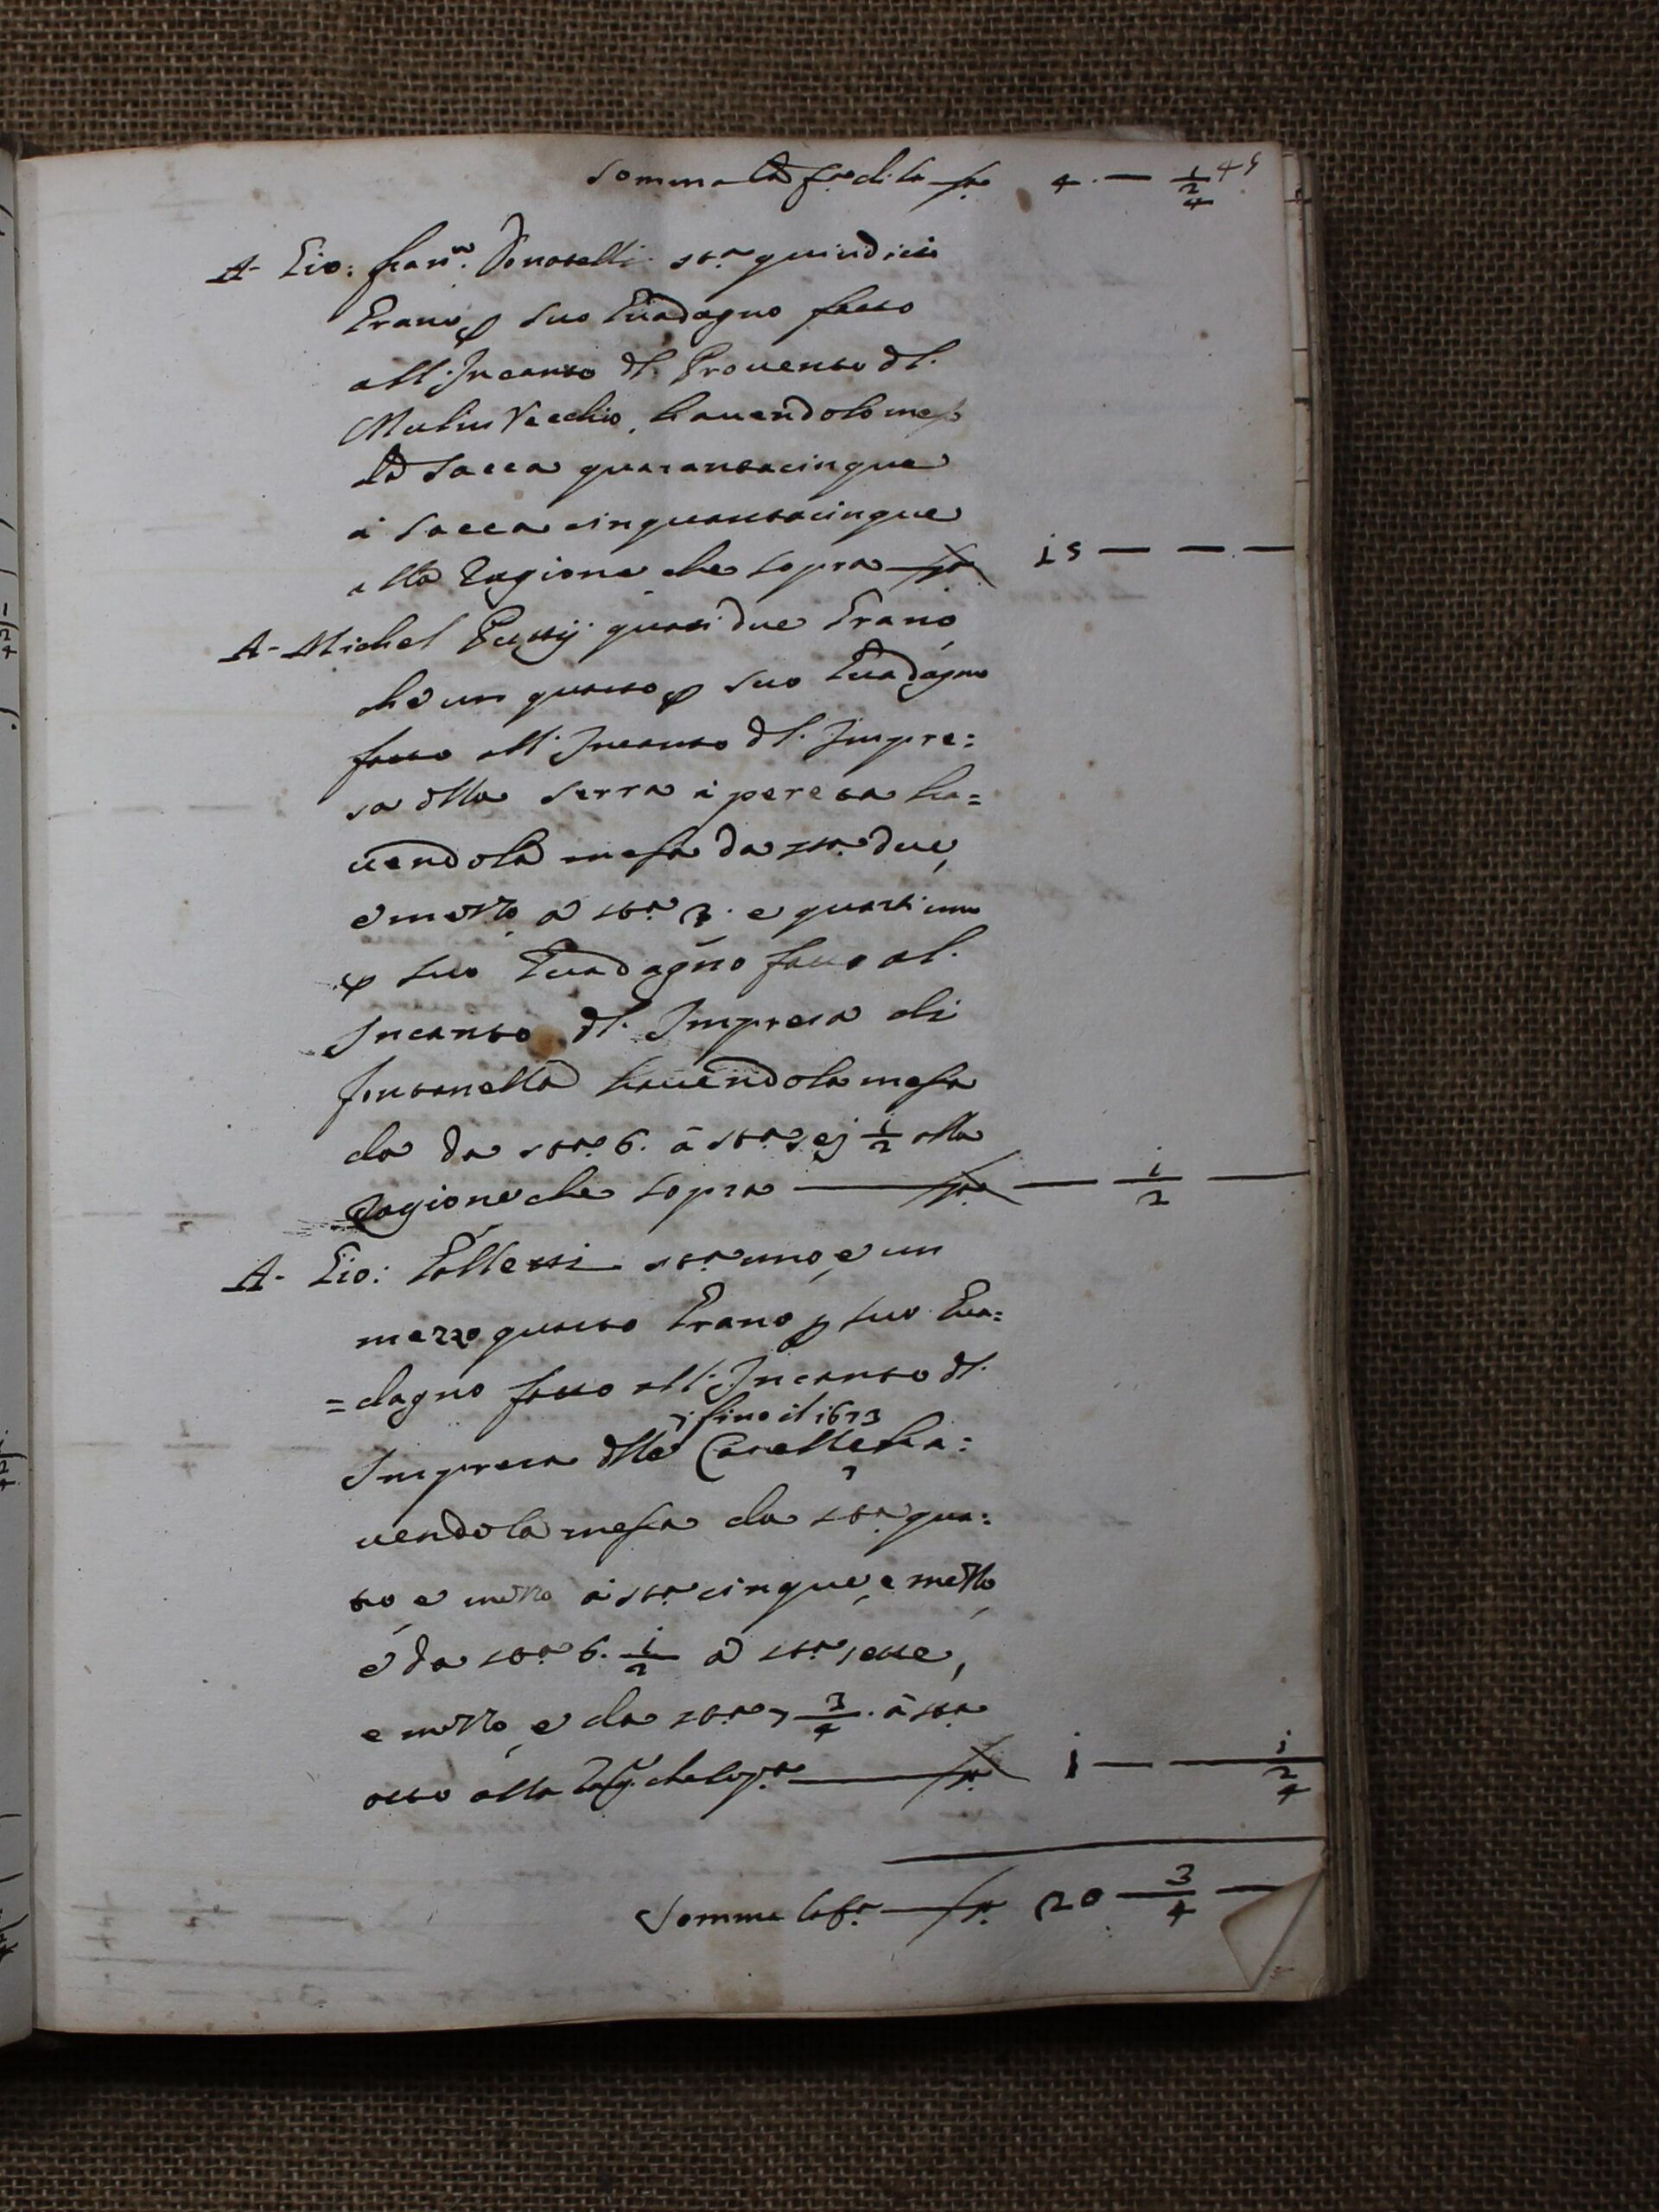 Somma la fac.ta di la 4 — 1/2/4 45
A- Gio: Fran.co Donatelli st.a quindici
Grano p suo Guadagno fatto
all'Incanto dl. Provento dl.
Mulin Vecchio, hauendolo messo
da sacca quarantacinque
à sacca cinquantacinque
alla Ragione che sopra — 15 — — —
A- Michel quarti due Grano
che un quarto p suo Guadagno
fatto all'Incanto dl. Impre=
sa dlla Serra ha=
uendola messa da sta. due,
e mezzo à sta. 3. e quarti uno
p suo Guadagno fatto al.
Incanto dl. Impresa di
Fontanella hauendola messa
da da sta. 6. à sta. sej 1/2 alla
Ragione che sopra — — 1/2 —
A- Gio: sta. uno, e un
mezzo quarto Grano p suo Gua=
=dagno fatto all'Incanto dl.
fino il 1673
Impresa dlle ha=
uendola messa da sta. qua=
tro, e mezzo à sta. cinque, e mezzo,
e da sta. 6. 1/2 à sta. sette,
e mezzo, e da sta. 7 3/4. à sta.
otto alla Rag.e che sop.a — 1 — — 1/2/4
Somma la fa. — 20 — 3/4 —